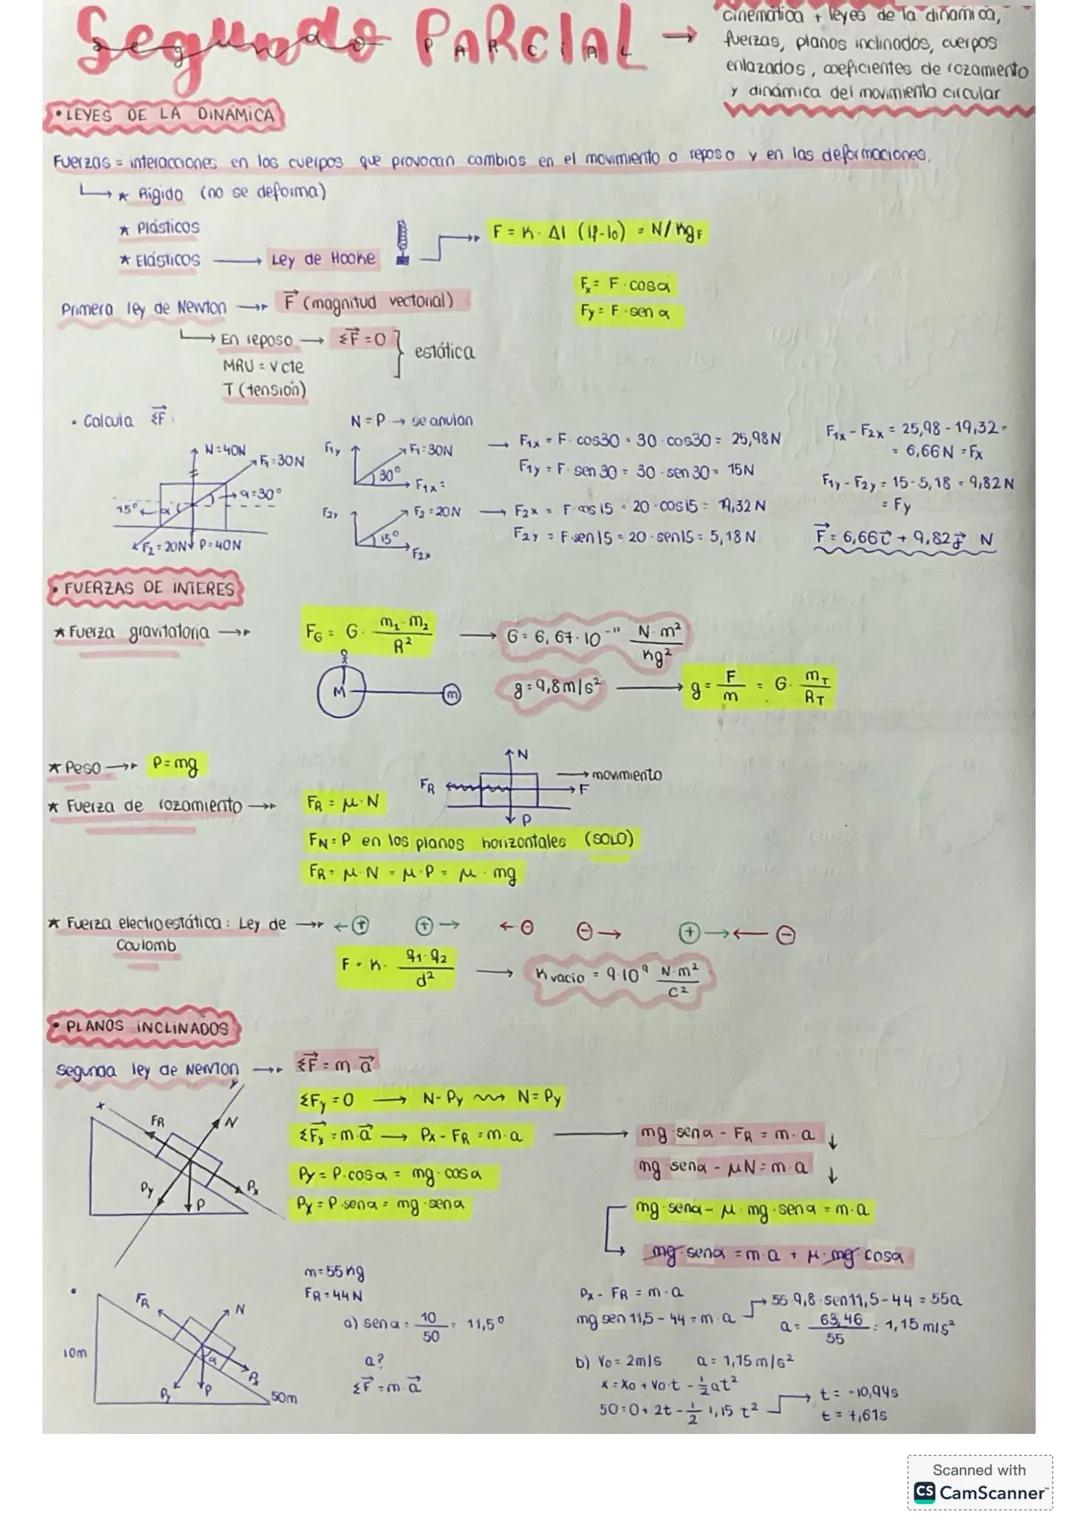 Segundo PARCIAL →
cinemática + leyes de la dinámica,
fuerzas, planos inclinados, cuerpos
enlazados, coeficientes de rozamiento
y dinámica del movimiento circular
• LEYES DE LA DINÁMICA
Fuerzas = interacciones en los cuerpos que provocan cambios en el movimiento o reposo y en las deformaciones.
↳ ★ Rígido (no se deforma)
★ Plásticos
★ Elásticos → Ley de Hooke → F = K · Δl (lf-lo) = N/KgF
Fx = F · cosα
Fy = F · sen α
Primera ley de Newton → F⃗ (magnitud vectorial)
↳ En reposo → ΣF⃗ = 0
MRU = v cte
T (tensión)
estática
• Calcula ΣF⃗.
N = P → se anulan
N = 40N
F₁ = 30N
α = 30°
15°
α
F₂ = 20N
P = 40N
F1y
F₁ = 30N
30°
F1x =
F2y
F₂ = 20N
15°
F2x
→ F1x = F · cos30 = 30 · cos30 = 25,98N
F1y = F · sen 30 = 30 · sen 30 = 15N
→ F2x = F · cos 15 = 20 · cos15 = 19,32 N
F2y = F · sen 15 = 20 · sen15 = 5,18 N
F1x - F2x = 25,98 - 19,32 =
= 6,66N = Fx
F1y - F2y = 15 - 5,18 = 9,82N
= Fy
F⃗ = 6,66i⃗ + 9,82j⃗ N
• FUERZAS DE INTERÉS
★ Fuerza gravitatoria →
FG = G · m₁ · m₂ / R²
→ G = 6,67 · 10⁻¹¹ N · m² / Kg²
M
m
g = 9,8 m/s² → g = F / m = G · mT / RT
★ Peso → P = mg
★ Fuerza de rozamiento → FR = μ · N
N
→ movimiento
FR
F
P
FN = P en los planos horizontales (SOLO)
FR = μ · N = μ · P = μ · mg
★ Fuerza electroestática: Ley de → ← ⊕ ⊕ → ← ⊖ ⊖ → ⊕ → ← ⊖
Coulomb
F = K · q₁ · q₂ / d² → K vacío = 9·10⁹ N·m² / C²
• PLANOS INCLINADOS
Segunda ley de Newton → ΣF⃗ = m · a⃗
ΣFy = 0 → N - Py ⇝ N = Py
ΣF⃗x = m · a⃗ → Px - FR = m · a
Py = P · cosα = mg · cosα
Px = P · senα = mg · senα
→ mg · senα - FR = m · a ↓
mg · senα - μN = m · a ↓
mg · senα - μ · mg · senα = m · a
↳ mg · senα = m · a + μ · mg cosα
x
y
FR
N
Py
P
Px
•
10m
FR
N
α
Py
P
Px
50m
m = 55 kg
FR = 44 N
a) senα = 10 / 50 = 11,5°
a?
ΣF⃗ = m · a⃗
Px - FR = m · a
mg sen 11,5 - 44 = m · a
→ 55 · 9,8 · sen11,5 - 44 = 55a
a = 63,46 / 55 = 1,15 m/s²
b) Vo = 2m/s a = 1,15 m/s²
x = xo + vo·t - ½at²
50 = 0 + 2t - ½ 1,15 t²
→ t = -10,94s
t = 7,61s
Scanned with
CS CamScanner